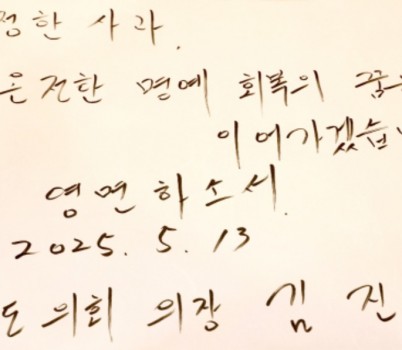 정한 사과.
은전한 명예 회복의 꿈을
이어가겠습니
영면하소서.
2025. 5. 13
도 의회 의장 김 진